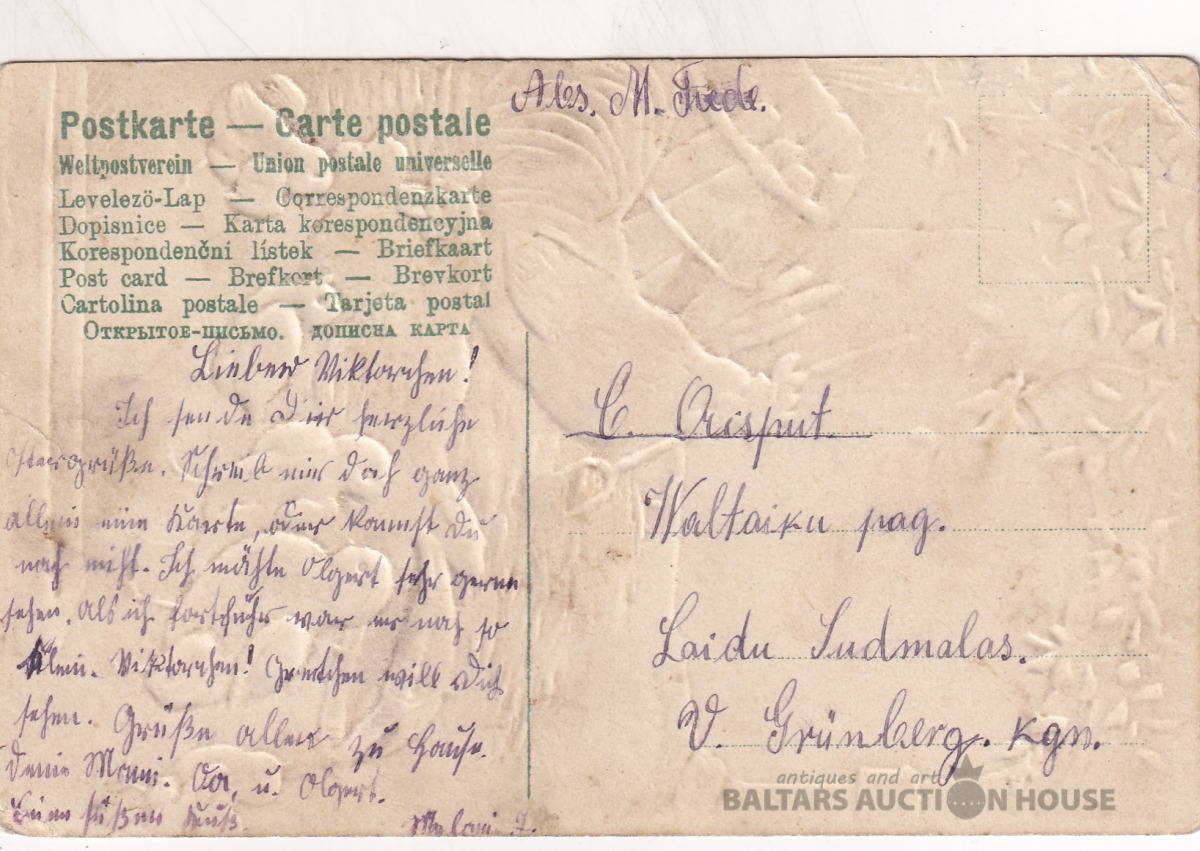 Abs. M. Tiede.
Postkarte — Carte postale
Weltpostverein — Union postale universelle
Levelezö-Lap — Correspondenzkarte
Dopisnice — Karta korespondencyjna
Korespondenční lístek — Briefkaart
Post card — Brefkort — Brevkort
Cartolina postale — Tarjeta postal
Открытое-письмо. дописна карта
Lieber Viktorchen!
Ich sende Dir herzliche
Ostergrüße. Schreib mir doch ganz
allein eine Karte, oder kannst Du
noch nicht. Ich möchte Olgert sehr gerne
sehen. Als ich fortfuhr war er noch so
klein. Viktorchen! Gretchen will Dich
sehen. Grüße allen zu Hause.
Deine Mimi. u. Olgert.
Einen süßen Kuß.
C. Crisput.
Waltaiku pag.
Laidu Sudmalas.
V. Grünberg. kgn.
antiques and art
BALTARS AUCTION HOUSE